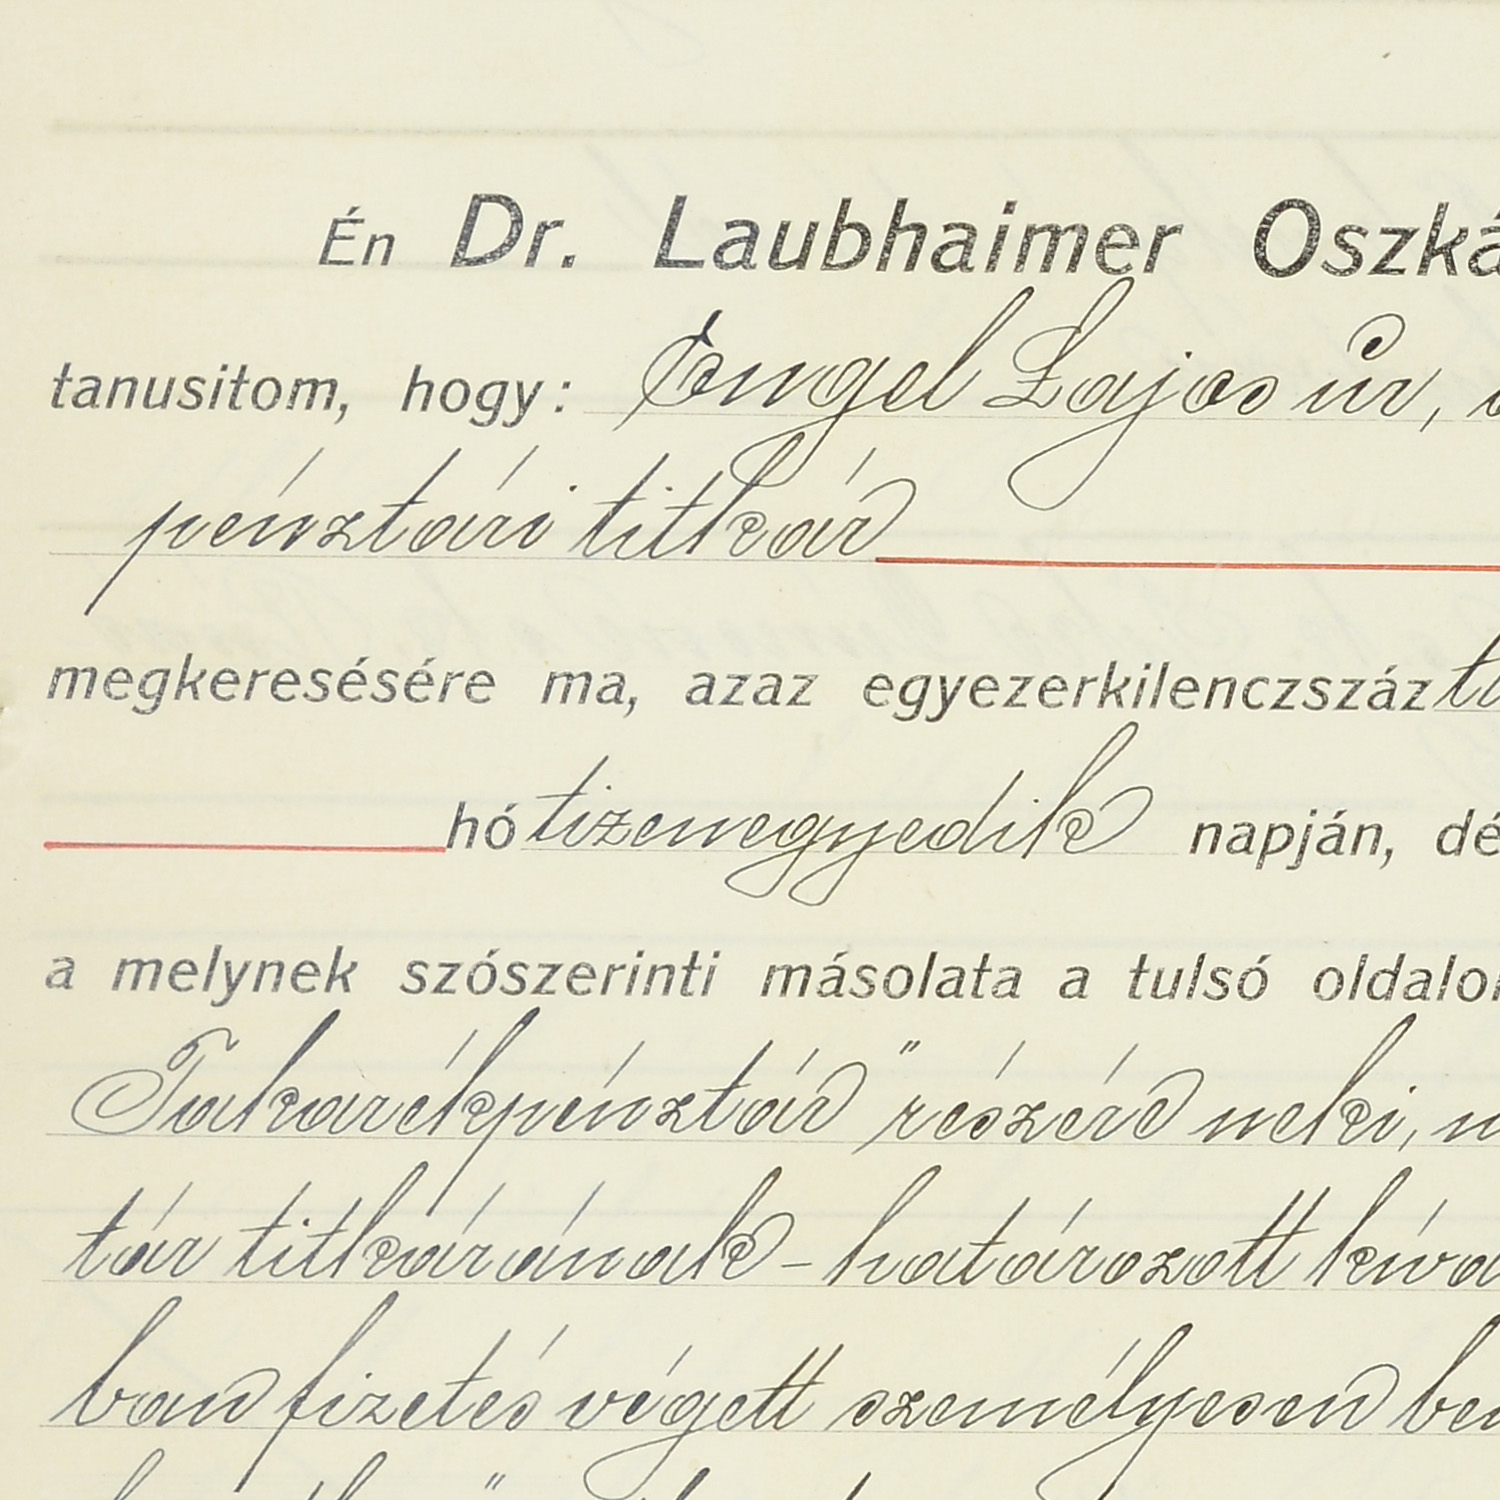 Én Dr. Laubhaimer Oszká
tanusitom, hogy: Engel Lajos úr,
pénztári titkár
megkeresésére ma, azaz egyezerkilenczszáz
hó tizenegyedik napján, dé
a melynek szószerinti másolata a tulsó oldalon
Takarékpénztár" részére neki,
tár titkárának - határozott kíva
ban fizetés végett személyesen be